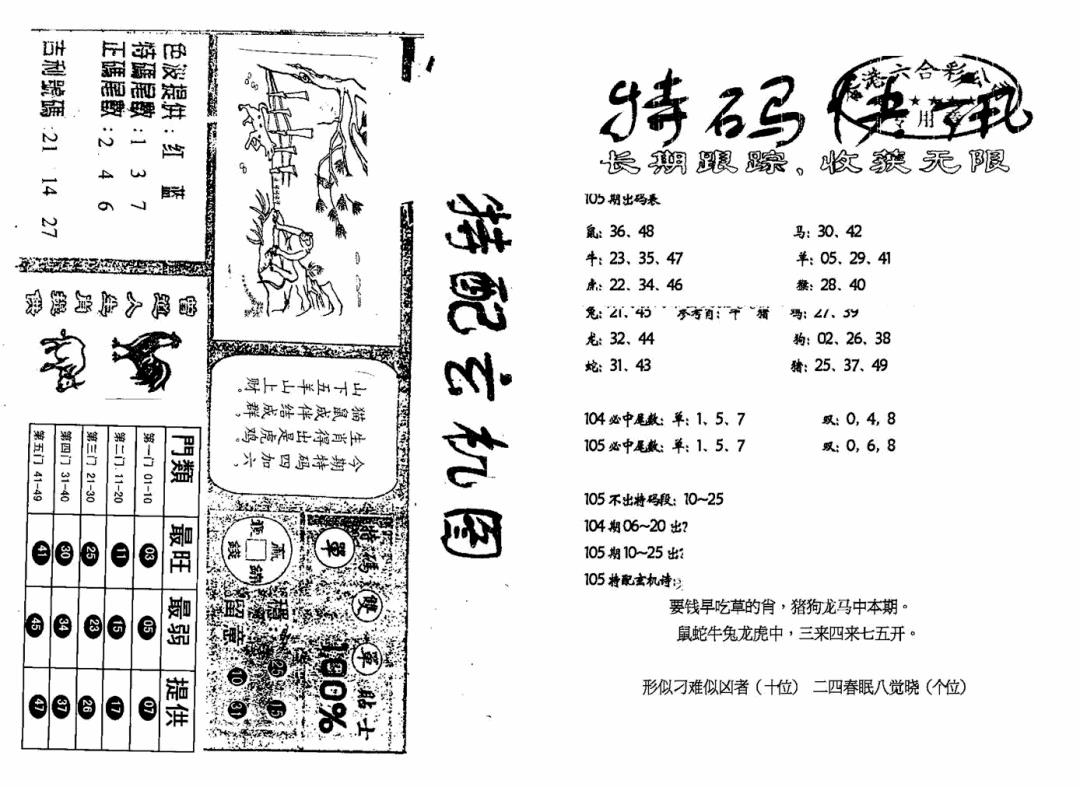 特码快讯
香港六合彩公
专用章
长期跟踪、收获无限
105期出码表
鼠：36、48 马：30、42
牛：23、35、47 羊：05、29、41
虎：22、34、46 猴：28、40
兔：21、45 参考肖：牛 猪 鸡：27、39
龙：32、44 狗：02、26、38
蛇：31、43 猪：25、37、49
104必中尾数：单：1、5、7 双：0，4，8
105必中尾数：单：1、5、7 双：0，6，8
105不出特码段：10～25
104期06～20出？
105期10～25出？
105特配玄机诗：
要钱早吃草的肖，猪狗龙马中本期。
鼠蛇牛兔龙虎中，三来四来七五开。
形似刁难似凶者（十位） 二四春眠八觉晓（个位）
特配玄机图
色波提供：红 蓝
特碼尾數：1 3 7
正碼尾數：2 4 6
吉利號碼：21 14 27
曾道人生肖提供
今期特码四加六，
生肖得出是虎鸡。
猫鼠成伴结成群，
山下五羊山上财。
門類 最旺 最弱 提供
第一门 01-10 03 05 07
第二门 11-20 11 15 17
第三门 21-30 25 23 26
第四门 31-40 30 34 37
第五门 41-49 41 45 47
特碼 單 雙 單 貼士
100%
留意
10 31
15